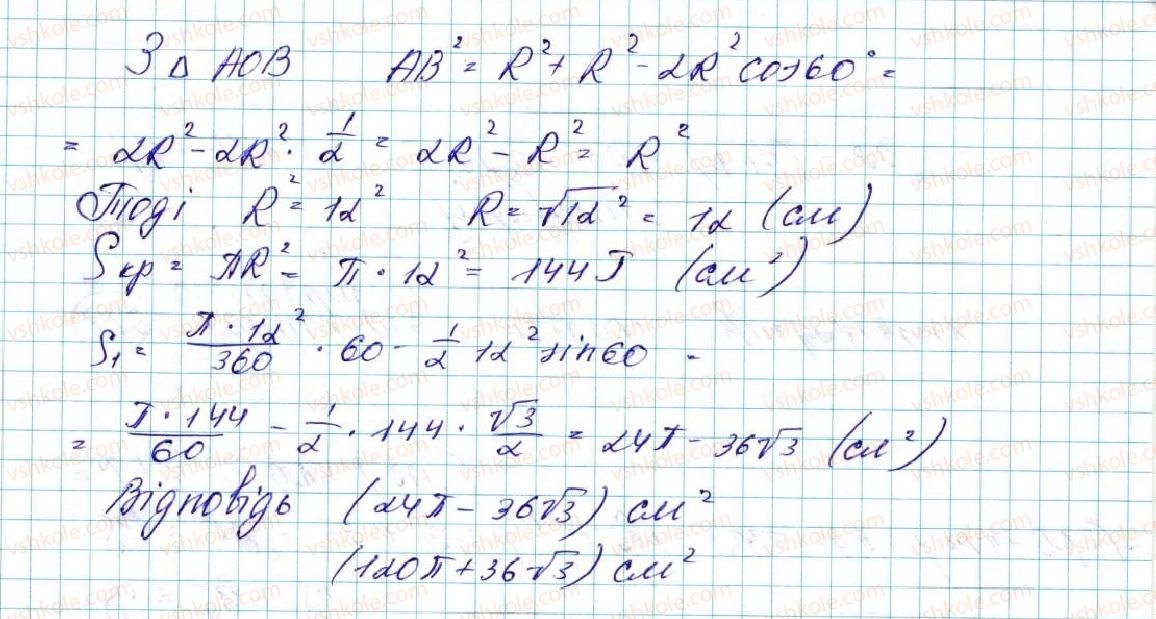 З △ AOB AB² = R² + R² - 2R² cos60° =
= 2R² - 2R² · 1/2 = 2R² - R² = R²
Тоді R² = 12² R = √12² = 12 (см)
Sкр = πR² = π · 12² = 144π (см²)
S₁ = π · 12²/360 · 60 - 1/2 12² sin60 =
= π · 144/60 - 1/2 · 144 · √3/2 = 24π - 36√3 (см²)
Відповідь (24π - 36√3) см²
(120π + 36√3) см²
vshkole.com